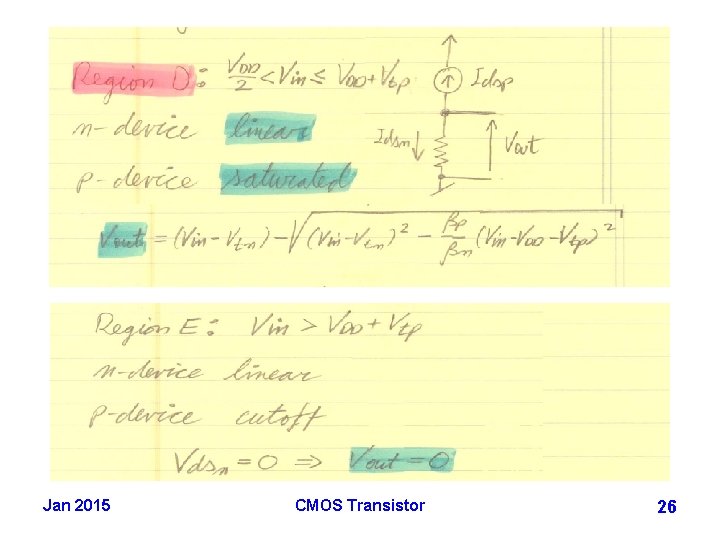 Region D: VDD/2 < Vin ≤ VDD + Vtp
Idsp
n-device linear
Idsn
Vout
p-device saturated
Vout = (Vin - Vtn) - √(Vin - Vtn)² - βp/βn (Vin - VDD - Vtp)²
Region E: Vin > VDD + Vtp
n-device linear
p-device cutoff
Vdsn = 0 ⇒ Vout = 0
Jan 2015 CMOS Transistor 26